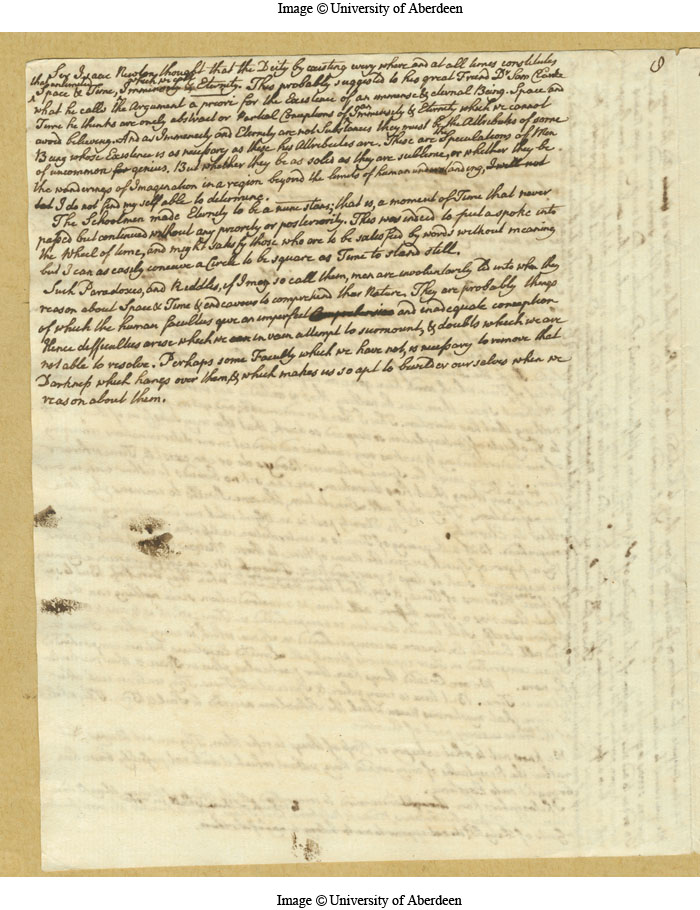 Image © University of Aberdeen
9
Sir Isaac Newton thought that the Deity by existing every where and at all times constitutes
that unlimited which we call
Space & Time, Immensity & Eternity. This probably suggested to his great Friend Dr Sam Clarke
what he calls the Argument a priori for the Existence of an immense & eternal Being. Space and
Time he thinks are onely abstract or Partial Conceptions of an Immensity & Eternity which we cannot
avoid believing. And as Immensity and Eternity are not Substances they must be the Attributes of some
Being whose Existence is as necessary as these his Attributes are. These are the Speculations of Men
of uncommon genius. But whether they be as solid as they are sublime, or whether they be
the wanderings of Imagination in a region beyond the limits of human understanding, I will not
but I do not find my self able to determine.
The Schoolmen made Eternity to be a nunc stans; that is, a moment of Time that never
passed but continued without any priority or posteriority. This was indeed to put a spoke into
the Wheel of time, and might satisfy those who are to be satisfied by words without meaning
but I can as easily conceive a Circle to be square as Time to stand still.
Such Paradoxes, and Riddles, if I may so call them, men are involuntarly led into when they
reason about Space & Time & endeavour to comprehend their Nature. They are probably things
of which the human faculties give an imperfect and inadequate conception
Hence difficulties arise which we in vain attempt to surmount, & doubts which we are
not able to resolve. Perhaps some Faculty which we have not, is necessary to remove that
Darkness which hangs over them, & which makes us so apt to bewilder ourselves when we
reason about them.
Image © University of Aberdeen